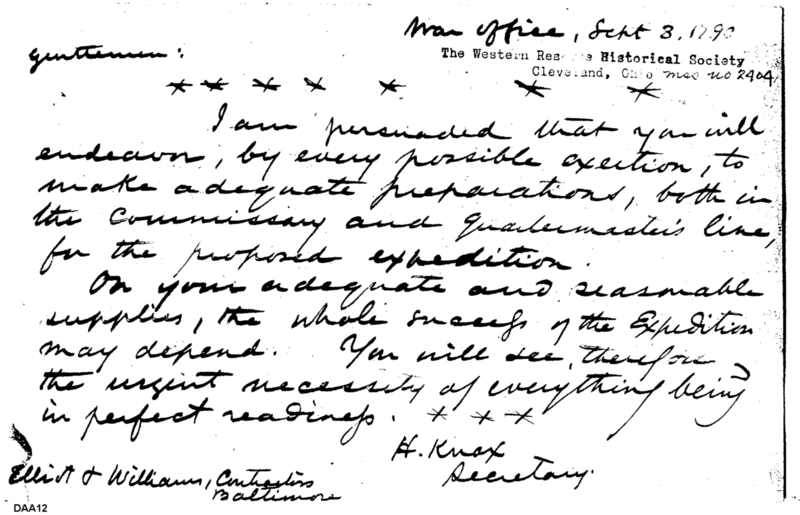 War Office, Sept 3, 1790
The Western Reserve Historical Society
Cleveland, Ohio mss no 2404
Gentlemen:
× × × × × × ×
I am persuaded that you will
endeavor, by every possible exertion, to
make adequate preparations, both in
the Commissary and Quartermaster's line,
for the proposed expedition.
On your adequate and seasonable
supplies, the whole success of the Expedition
may depend. You will see, therefore
the urgent necessity of everything being
in perfect readiness. × × ×
H. Knox
Secretary.
Elliot & Williams, Contractors
Baltimore
DAA12